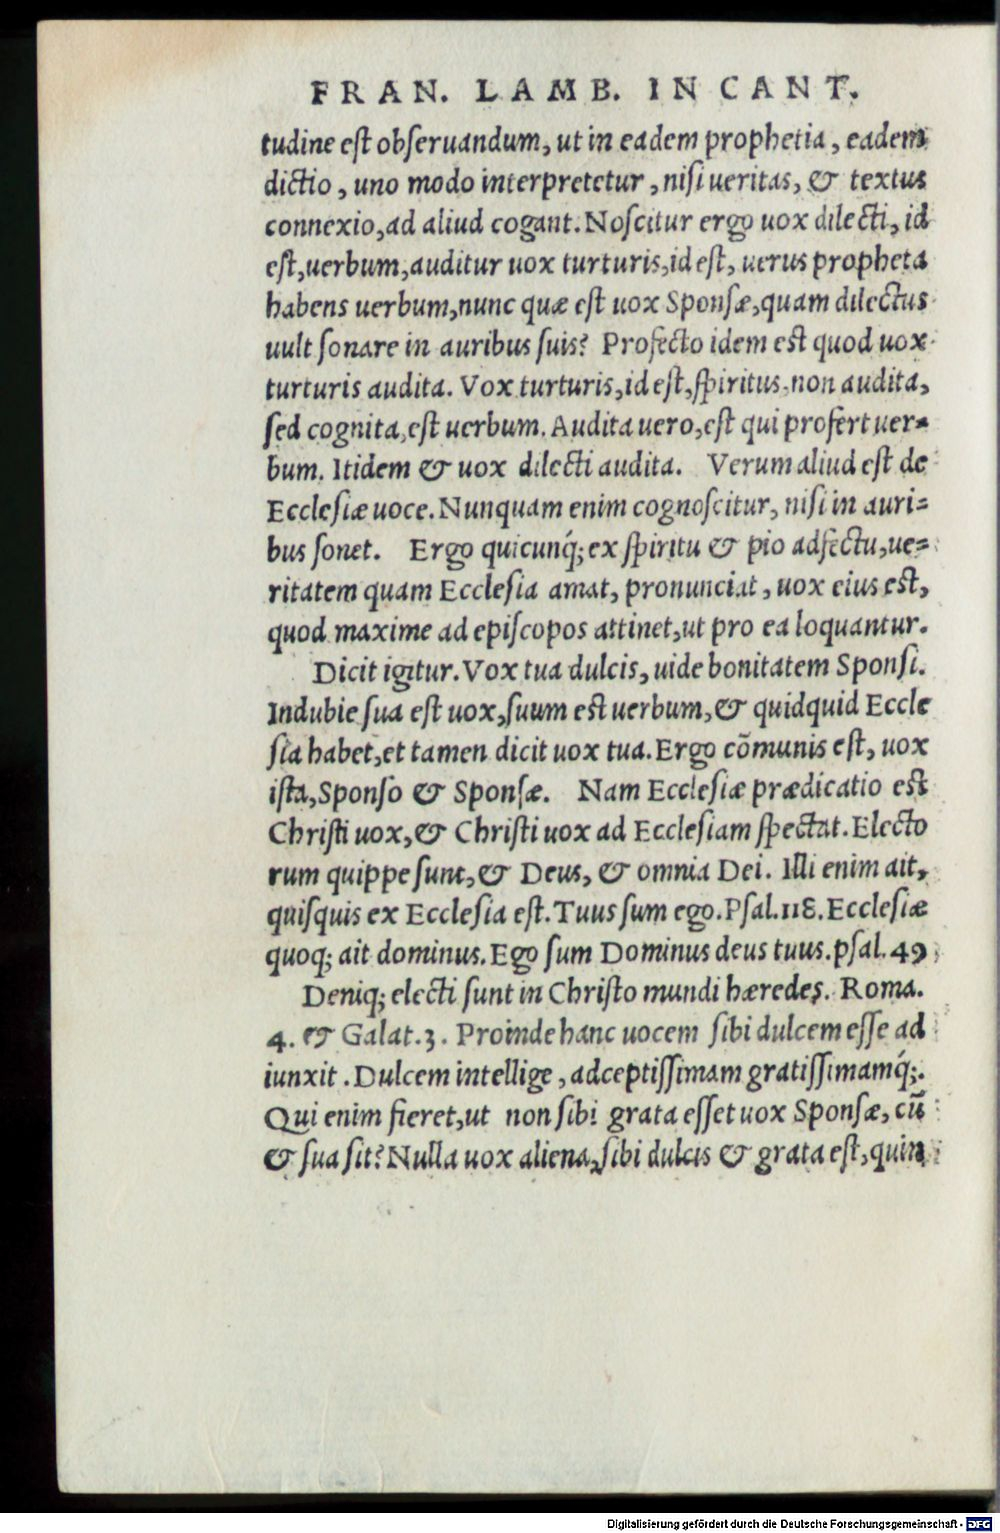 FRAN. LAMB. IN CANT.
tudine est obseruandum, ut in eadem prophetia, eadem
dictio, uno modo interpretetur, nisi ueritas, & textus
connexio, ad aliud cogant. Noscitur ergo uox dilecti, id
est, uerbum, auditur uox turturis, id est, uerus propheta
habens uerbum, nunc quæ est uox Sponsæ, quam dilectus
uult sonare in auribus suis? Profecto idem est quod uox
turturis audita. Vox turturis, id est, spiritus, non audita,
sed cognita, est uerbum. Audita uero, est qui profert uer=
bum. Itidem & uox dilecti audita. Verum aliud est de
Ecclesiæ uoce. Nunquam enim cognoscitur, nisi in auri=
bus sonet. Ergo quicunq́; ex spiritu & pio adfectu, ue=
ritatem quam Ecclesia amat, pronunciat, uox eius est,
quod maxime ad episcopos attinet, ut pro ea loquantur.
Dicit igitur. Vox tua dulcis, uide bonitatem Sponsi.
Indubie sua est uox, suum est uerbum, & quidquid Eccle
sia habet, et tamen dicit uox tua. Ergo cōmunis est, uox
ista, Sponso & Sponsæ. Nam Ecclesiæ prædicatio est
Christi uox, & Christi uox ad Ecclesiam spectat. Electo
rum quippe sunt, & Deus, & omnia Dei. Illi enim ait,
quisquis ex Ecclesia est. Tuus sum ego. Psal. 118. Ecclesiæ
quoq; ait dominus. Ego sum Dominus deus tuus. psal. 49,
Deniq; electi sunt in Christo mundi hæredes. Roma.
4. & Galat. 3. Proinde hanc uocem sibi dulcem esse ad
iunxit. Dulcem intellige, adceptissimam gratissimamq́;.
Qui enim fieret, ut non sibi grata esset uox Sponsæ, cū
& sua sit? Nulla uox aliena, sibi dulcis & grata est, quin
Digitalisierung gefördert durch die Deutsche Forschungsgemeinschaft - DFG